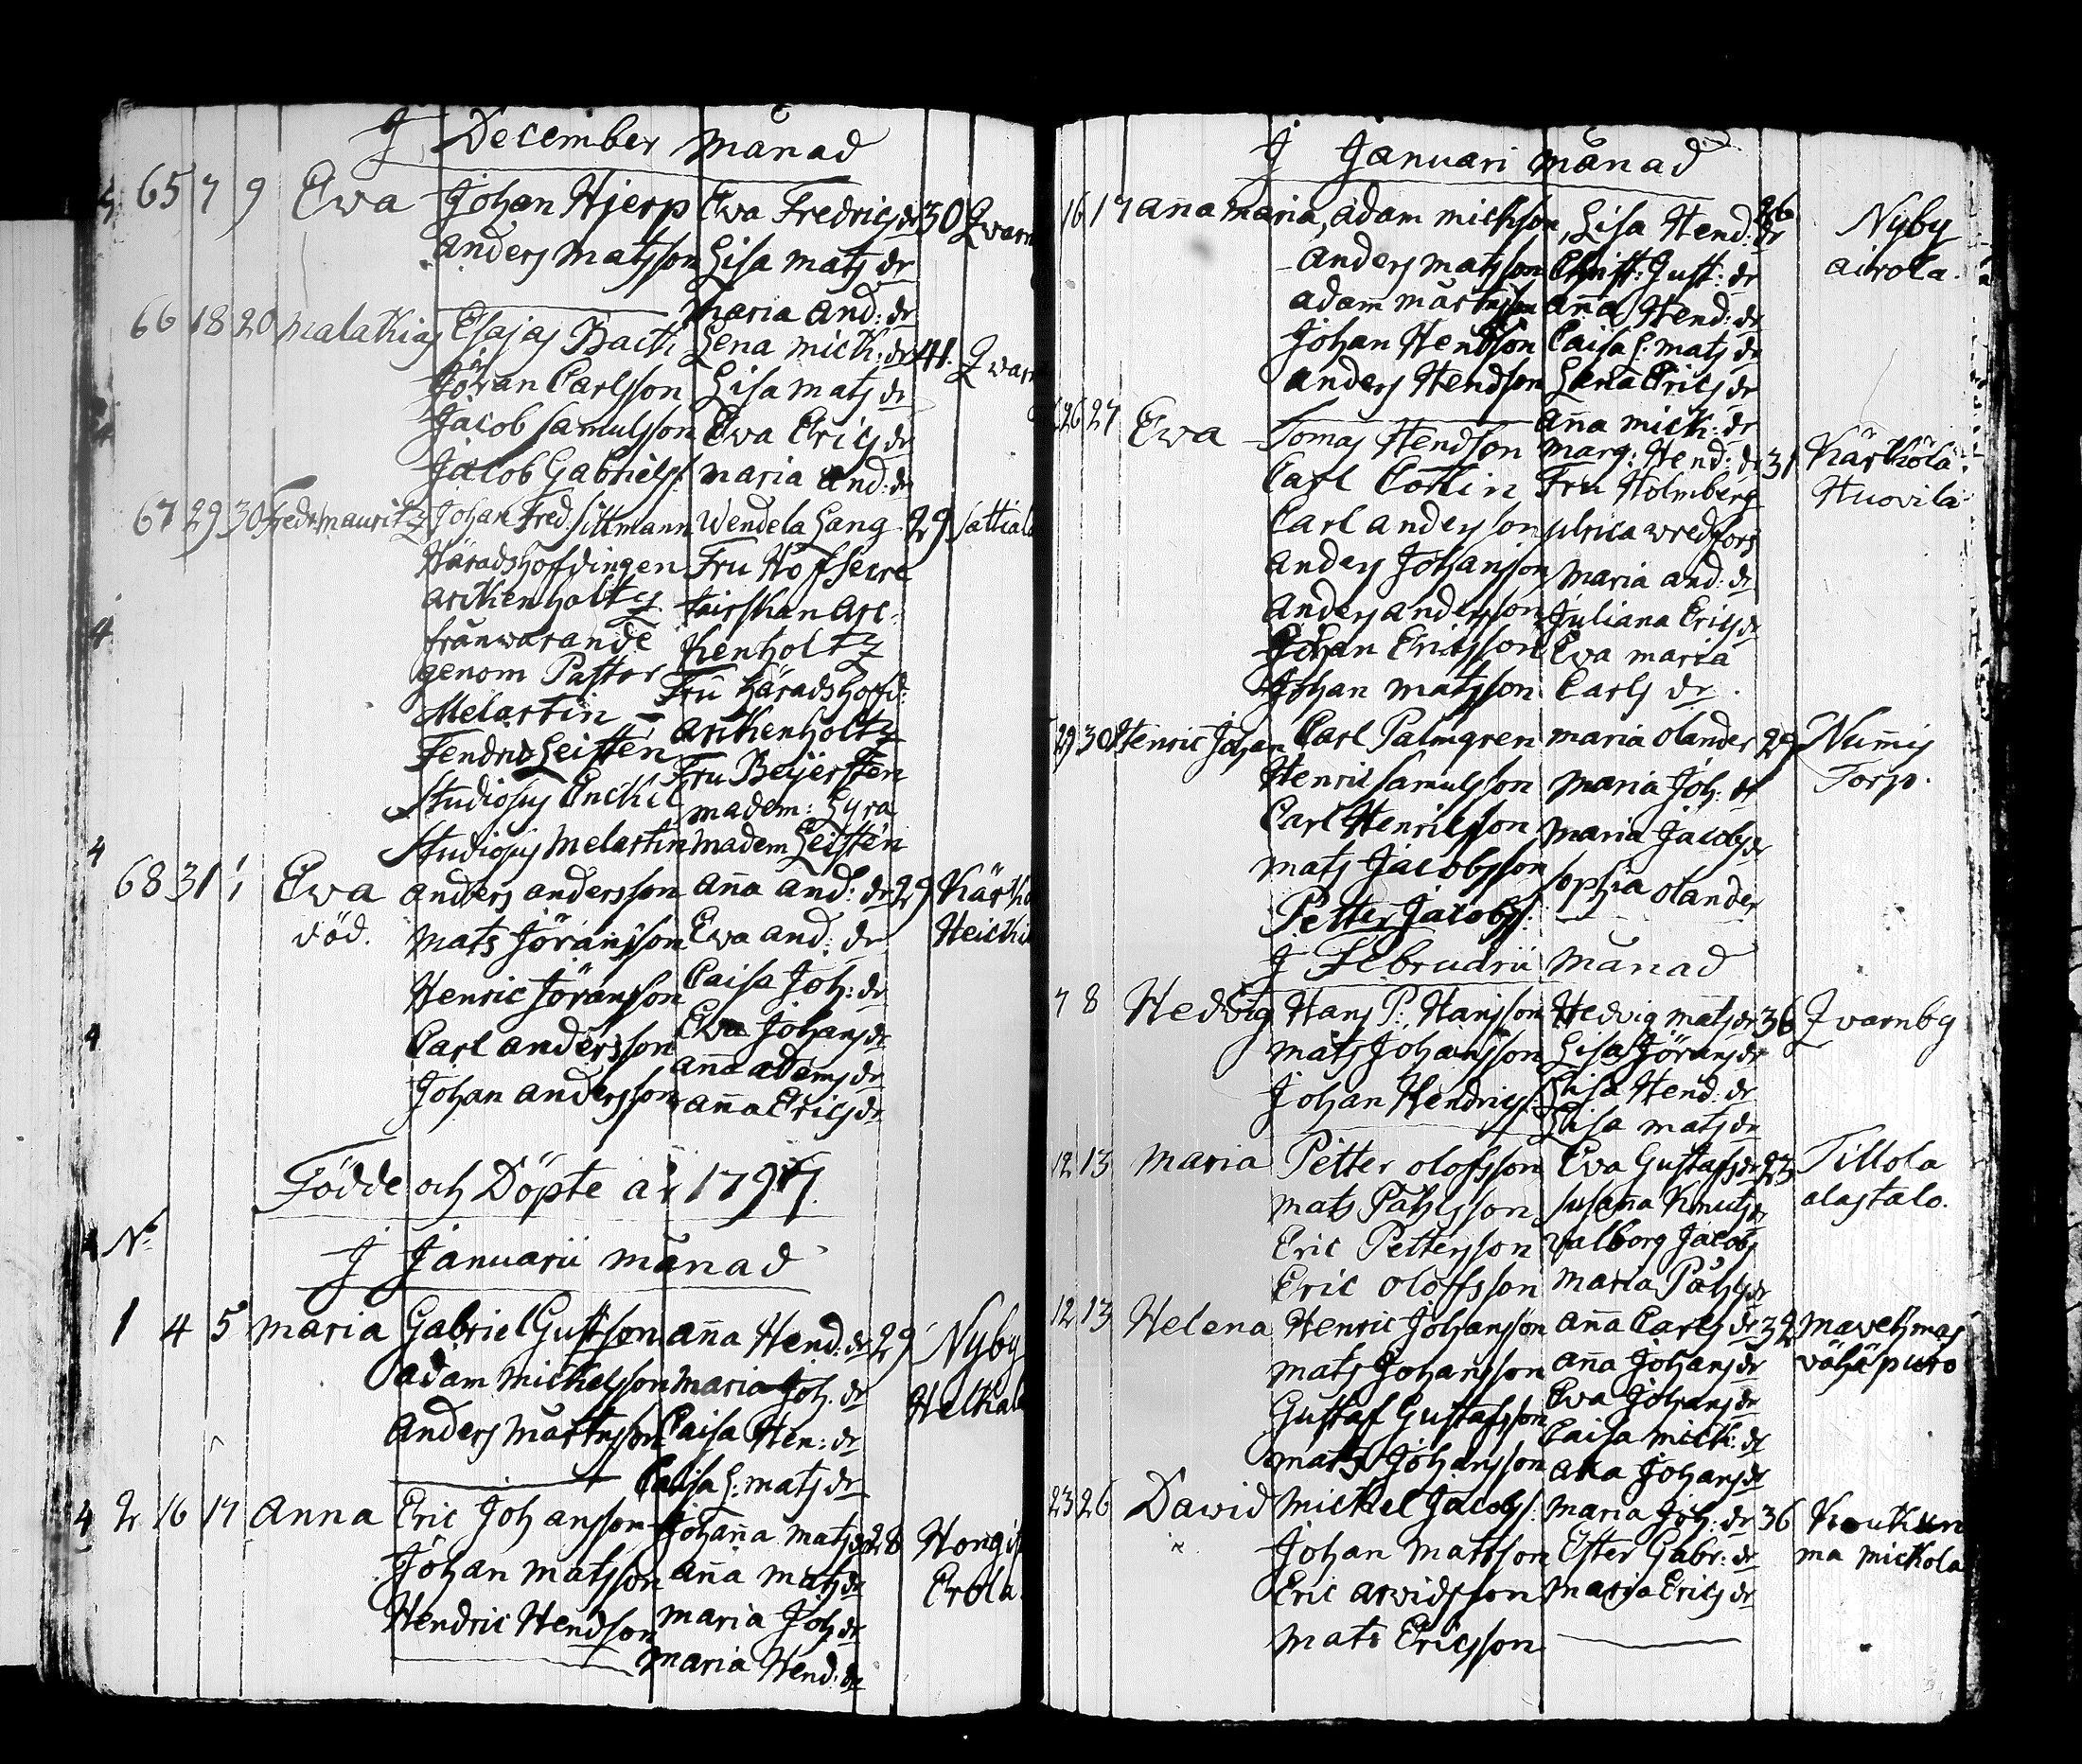 J December månad
65 7 9 Ewa Johan Hjerp Ewa Fredrics dr 30 Qvarn
Anders Matsson Lisa Mats dr
Maria And: dr
66 18 20 Malakias Esajas Back Lena Mich: dr 41. Qvarn
Jöran Carlsson Lisa Mats dr
Jacob Samulsson Ewa Erics dr
Jacob Gabriels: Maria And: dr
67 29 30 Fredr: Mauritz Johan Fred. Sittmann Wendela Lang 29 Sattiala
Häradshofdingen Fru Hofsecre
Arckenholtz tairskan Arc-
frånwarande kenholtz
genom Pastor Fru häradshofd:
Melartin Arckenholtz
Fendric Leistén Fru Beijersten
Studiosus Enckel madem: Lyra
Studiosus Melartin madem Leistén
68 31 1 Ewa Anders Andersson Anna And: dr 29 Kärkö
död. Mats Jöransson Ewa And: dr Heicki
Henric Jöransson Caisa Joh: dr
Carl Andersson Ewa Johans dr
Johan Andersson Anna Adams dr
Anna Erics dr
Födde och Döpte år 1797.
No
J Januarii månad
1 4 5 Maria Gabriel Gustsson Anna Hend: dr 29 Nyby
Adam Mickelsson Maria Joh. dr Helkala
Anders Mårtensson Caisa Hen: dr
Caisa L: Mats dr
2 16 17 Anna Eric Johansson Johanna Mats dr 28 Hongis
Johan Matsson Anna Mats dr Erola.
Hendric Hendsson Maria Joh dr
Maria Hend: dr
J Januari månad
16 17 Anna Maria, Adam Micksson, Lisa Hend: dr 26 Nyby
Anders Matsson Christ: Gust: dr Airola.
Adam Mårtensson Anna Hend: dr
Johan Hendsson Caisa L: Mats dr
Anders Hendson Lena Erics dr
Anna Mich: dr
26 27 Ewa Tomas Hendsson Marg: Hend: dr 31 Kärkölä
Carl Cottin Fru Holmberg Huovila
Carl Andersson Ulrica Wredfors
Anders Johansson Maria And: dr
Anders Andersson Juliana Erics dr
Johan Ericsson Ewa Maria
Johan Matsson Carls dr.
29 30 Henric Johan Carl Palmgren Maria Olander 29 Nummis
Henric Samulsson Maria Joh: dr Torp.
Carl Henricsson Maria Jacobs dr
Mats Jacobsson Sophia Olander
Petter Jacobs:
J Februarii månad
7 8 Hedvig Hans P: Hansson Hedvig Mats dr 36 Qvarnby
Mats Johansson Lisa Jörans dr
Johan Hendrics: Lisa Hend: dr
Lisa Mats dr
12 13 Maria Petter Olofsson Ewa Gustafs dr 23 Tillola
Mats Påhlsson Susanna Knuts dr Alastalo.
Eric Pettersson Valborg Jacobs
Eric Oloffsson Maria Påhls dr
12 13 Helena Henric Johansson Anna Carls dr 32 Mavehmas
Mats Johansson Anna Johans dr vähäpuro
Gustaf Gustafsson Ewa Johans dr
Mats Johansson Caisa Mich: dr
Johans dr
23 26 Dawid Mickel Jacobs: Maria Joh: dr 36
Johan Mattson Ester Gabr: dr ma Mickola
Eric Arvidsson Maria Erics dr
Mats Ericsson